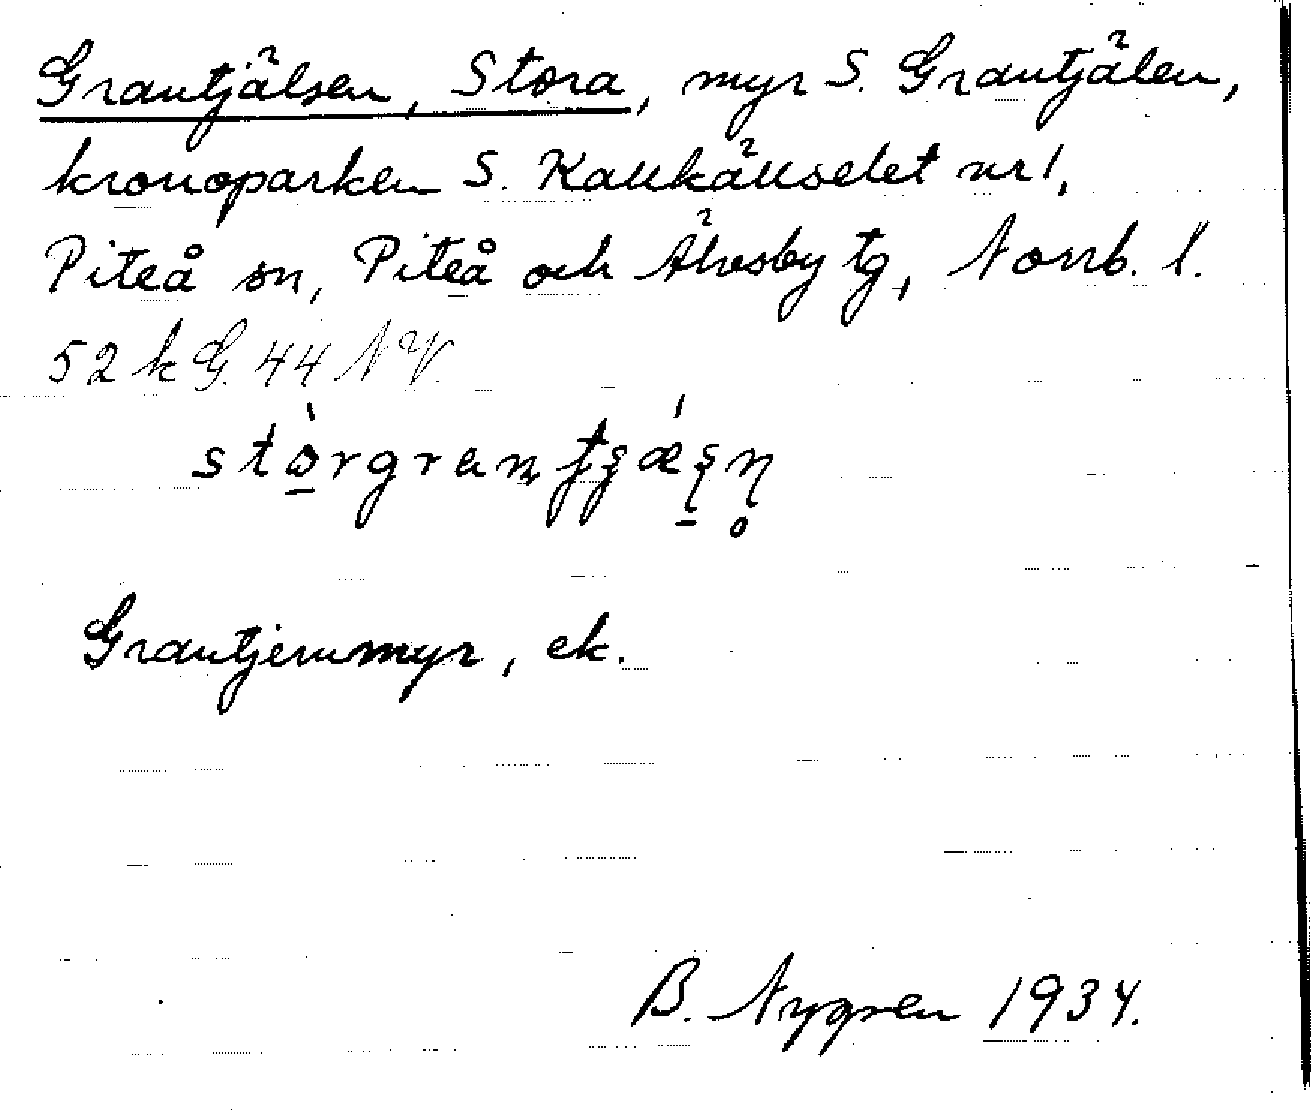 Grantjälsen, Stora, myr S. Grantjälen,
kronoparken S. Kallkällselet nr 1,
Piteå sn, Piteå och Älvsby tg, Norrb. l.
52 k G. 44 NV.
Grantjernmyr, ek.
B. Nygren 1934.